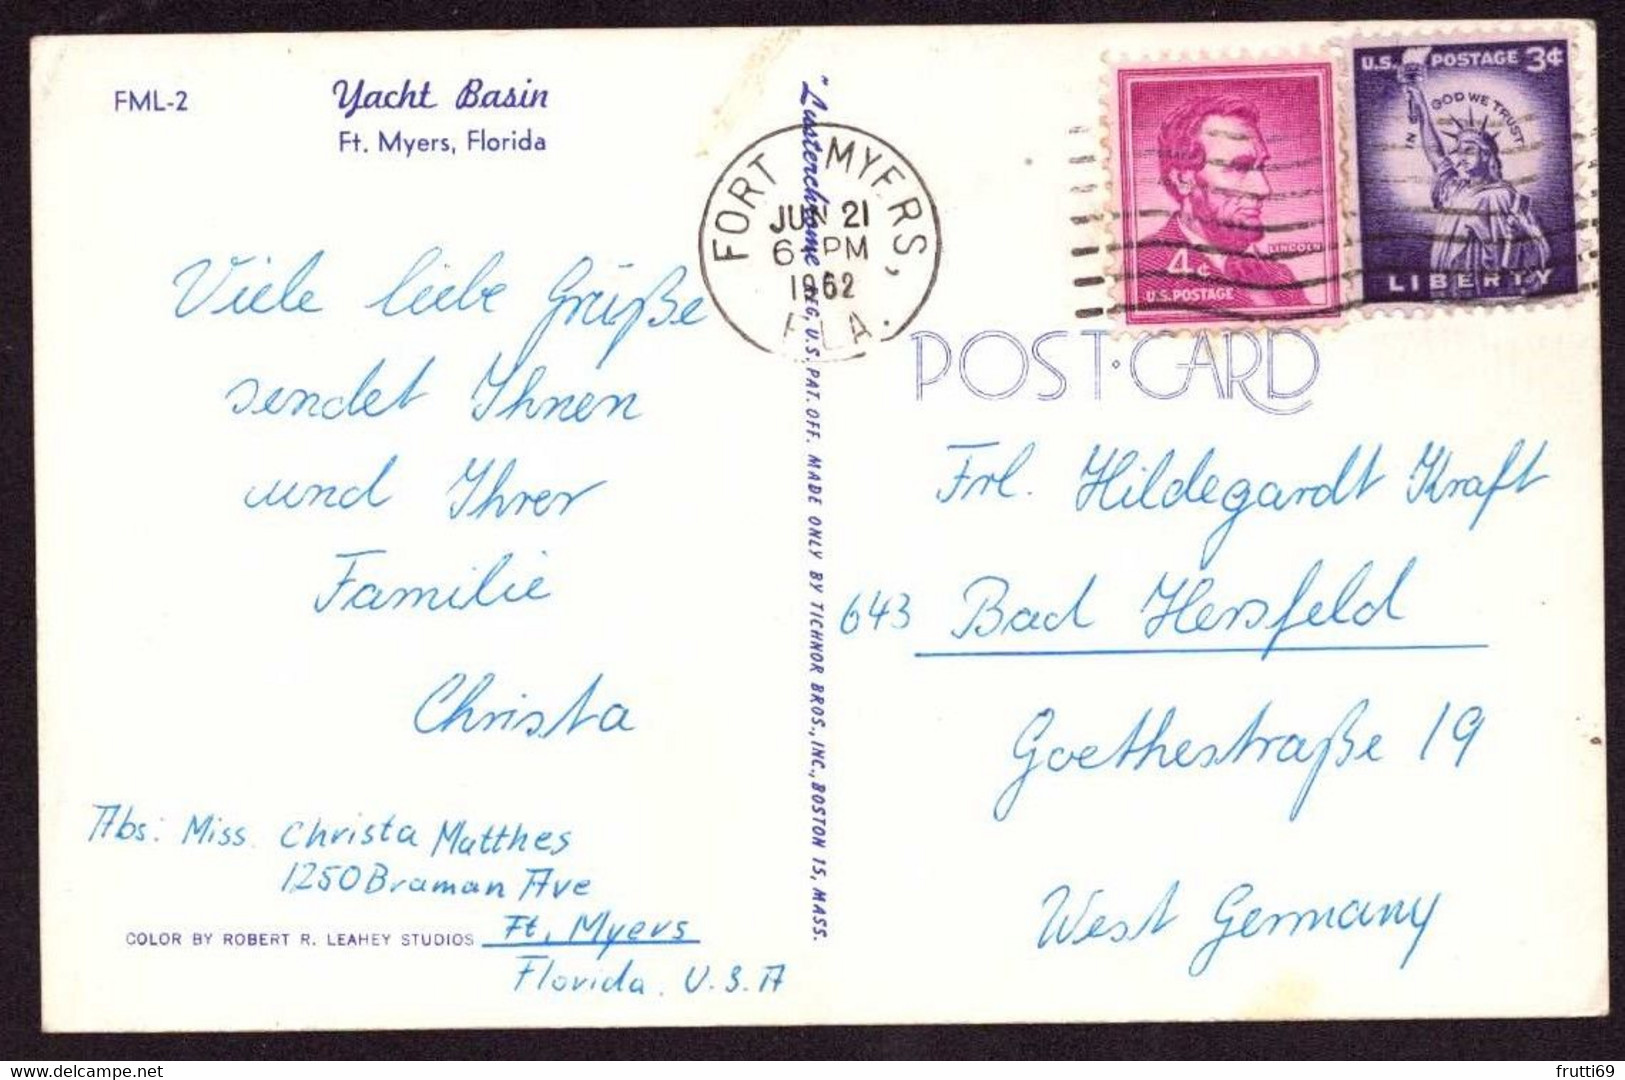 FML-2
Yacht Basin
Ft. Myers, Florida
Viele liebe Grüße
sendet Ihnen
und Ihrer
Familie
Christa
Abs: Miss. Christa Matthes
1250 Braman Ave
Ft. Myers
Florida. U.S.A
COLOR BY ROBERT R. LEAHEY STUDIOS
"Lusterchrome" REG, U.S. PAT. OFF. MADE ONLY BY TICHNOR BROS., INC., BOSTON 15, MASS.
FORT MYERS, FLA.
JUN 21
6 PM
1962
LINCOLN
4¢
U.S. POSTAGE
U.S. POSTAGE 3¢
IN GOD WE TRUST
LIBERTY
POST·CARD
Frl. Hildegardt Kraft
643 Bad Hersfeld
Goethestraße 19
West Germany
frutti69